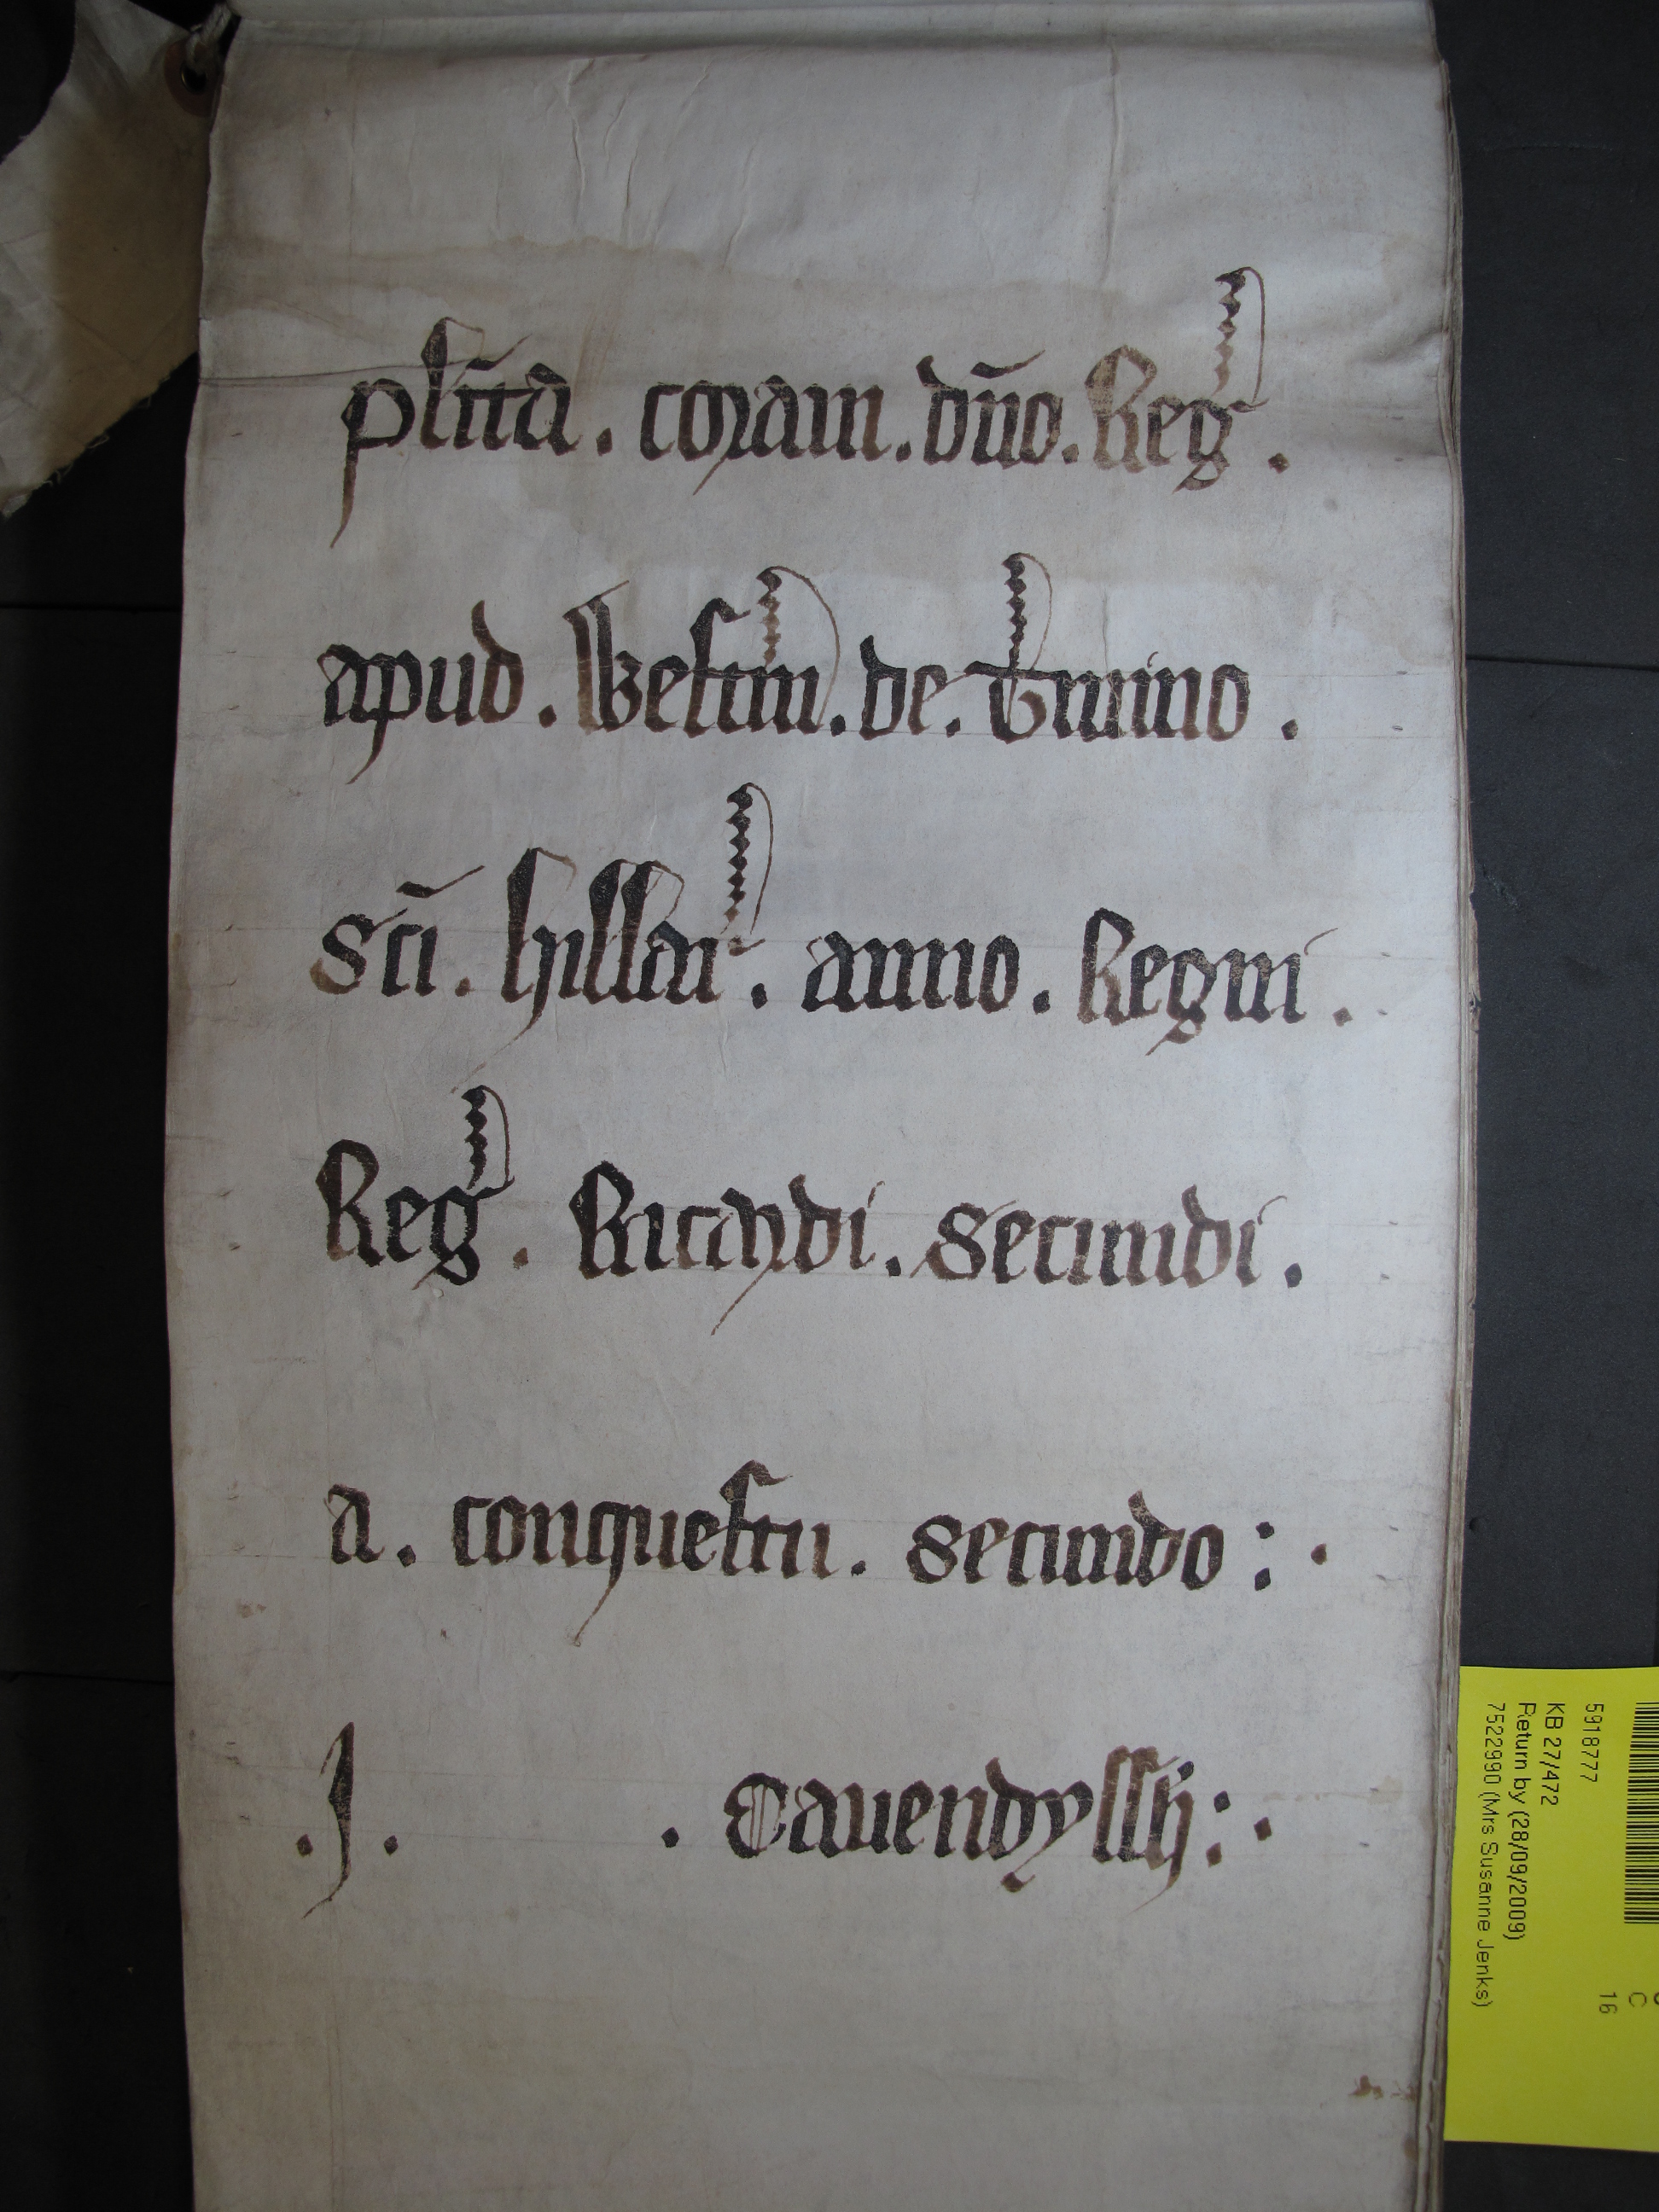 pli̅ta . coram . dn̅o . Reg' .
apud . Westm' . de . T'mino .
Sci̅ . Hillar' . anno . Regni .
Reg' . Ricardi . Secundi .
a . conquestu . secundo : .
. J . . Cauendyssh : .
5918777
KB 27/472
Return by (28/09/2009)
7522990 (Mrs Susanne Jenks)
C
16